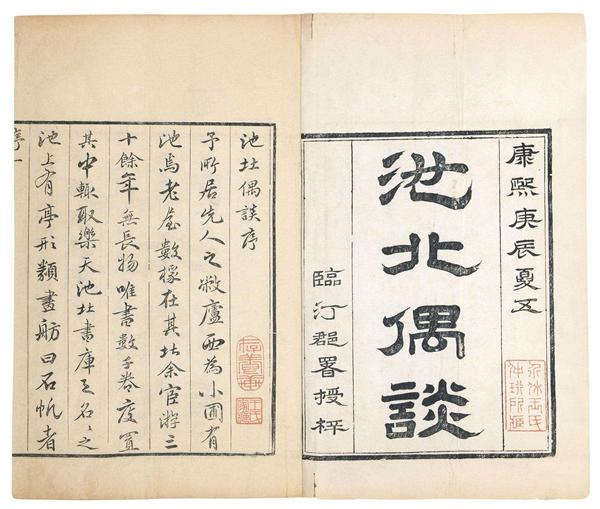 康熙庚辰夏五
池北偶談
臨汀郡署授梓
池北偶談序
予所居先人之敝廬西為小圃有
池焉老屋數椽在其北余宦游三
十餘年無長物唯書數千卷庋置
其中輒取樂天池北書庫之名名之
池上有亭形類畫舫曰石帆者
序一